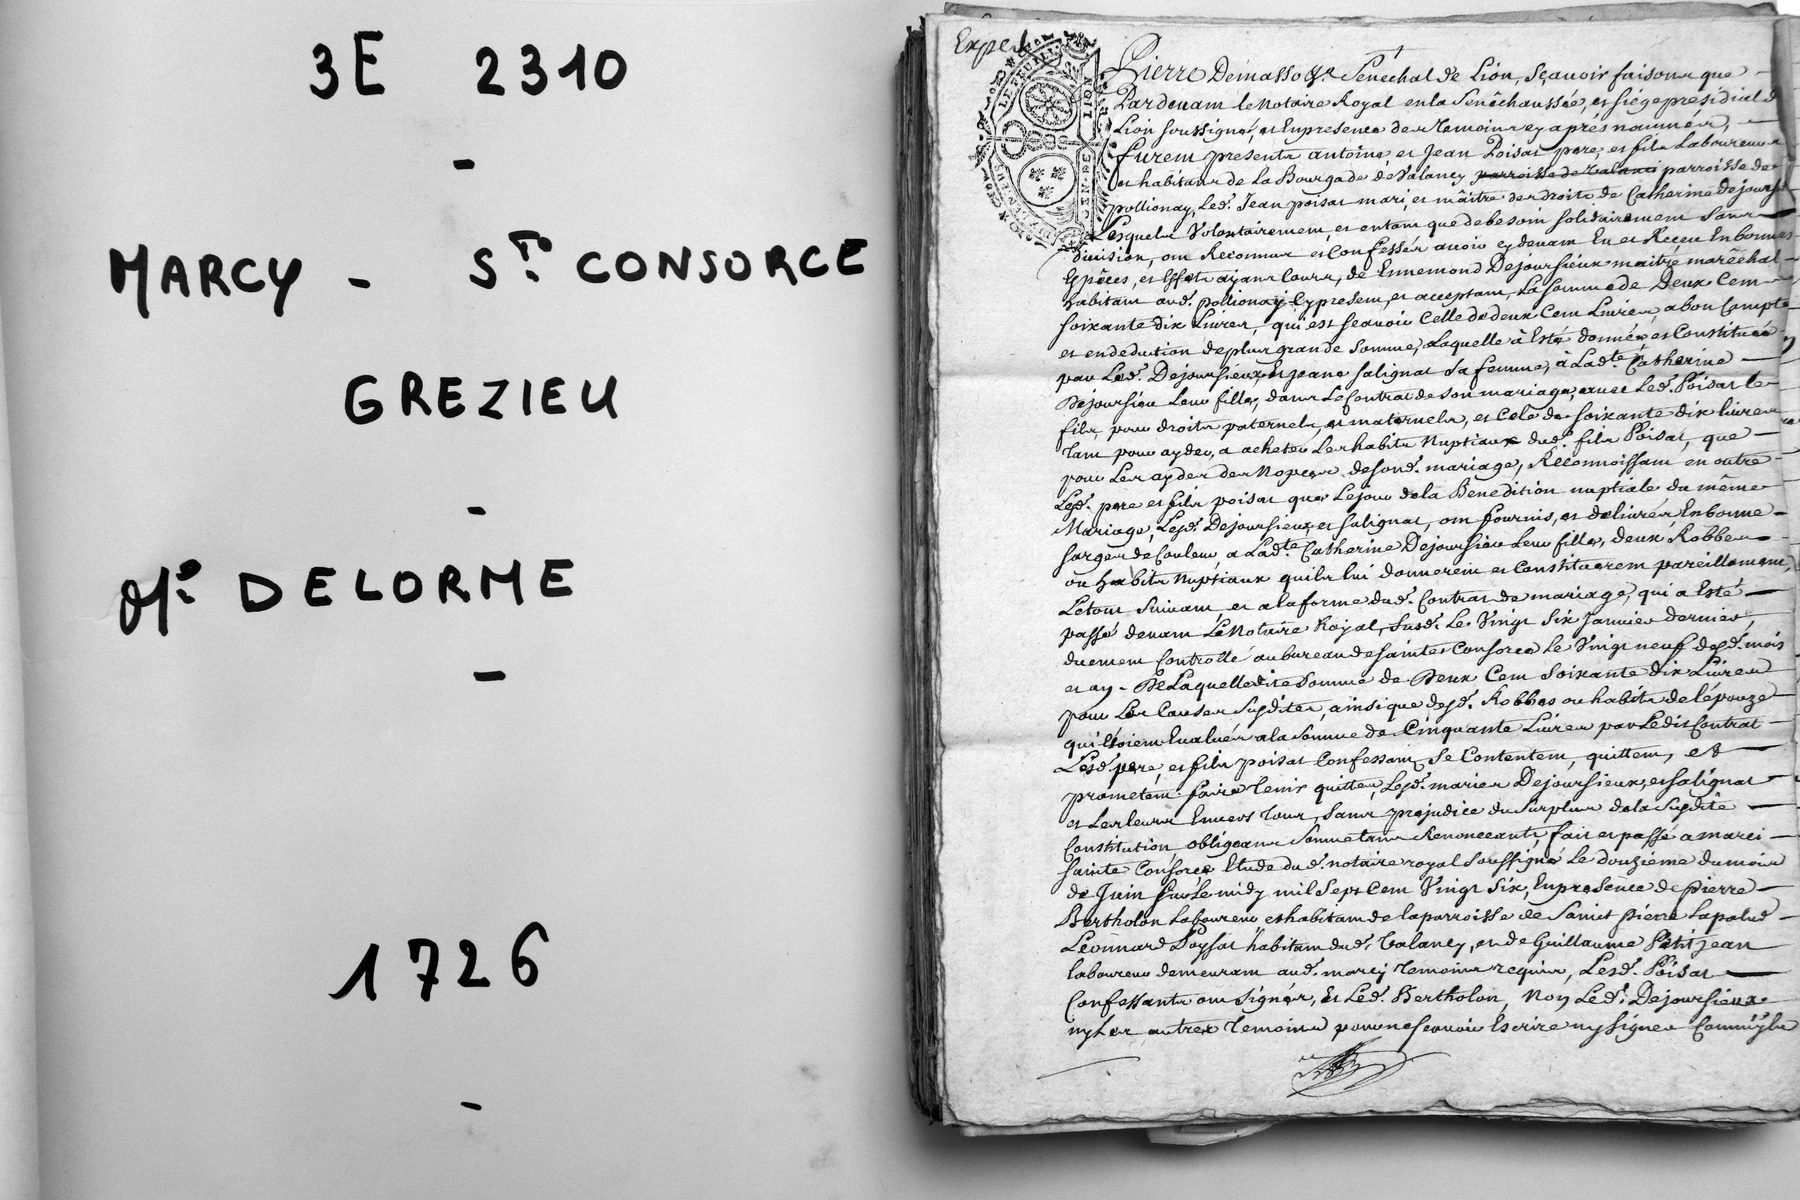 3E 2310
-
MARCY - STE CONSORCE
GREZIEU
-
Me DELORME
-
1726
-
Exped
LION
GEN.RE
Pierre Demasso Sr. Senechal de Lion, Sçavoir faisons que
Pardevant le Notaire Royal en la Senêchaussée, et siége présidial de
Lion soussigné, et Enpresence des temoins cy aprés nommés,
furent presents antoine et Jean Poisat pere, et fils Laboureurs
et habitans de La Bourgade de Valancy parroisse de
pollionay, Led. Jean poisat mari, et maître des droits de Catherine dejoursieu
Lesquels Volontairement, et entant que de besoin solidairement sans
division, ont Reconnu et Confessér avoir cy devant Eu et Receu En bonnes
Espêces, et Effets aÿant Cours, de Ennemond Dejoursieux maitre marêchal
habitant aud. pollionay Cy present, et acceptant, La somme de Deux Cent
soixante dix Livres, qui est sçavoir Celle de deux Cent Livres, a bon Compte
et en deduction de plus grande somme, Laquelle à Esté donnée et Constituée
par Led. Dejoursieux, Et jeane salignat sa femme, à Ladte. Catherine
Dejoursieu Leur fille, dans Le Contrat de son mariage, avec Led. Poisat le
fils, pour droits paternels, et maternels, et Cele de soixante dix livres
tant pour ayder, a acheter Les habits Nuptiaux dud. fils Poisat, que
pour Les ayder des Nopces de sond. mariage, Réconnoissant en outre
Lesd. pere et fils poisat que Le jour de la Benediction nuptiale du même
Mariage, Lesd. Dejoursieux et salignat, ont fournis, et delivrés, En bonne
sarges de Couleur a Ladte. Catherine Dejoursieu Leur fille, deux Robbes
ou habits Nuptiaux quils lui donnerent et Constituerent pareillement,
Le tout suivant, et a la forme dud. Contrat de mariage, qui a Esté
passé devant Le Notaire Royal, susd. Le Vingt six Janvier dernier,
duement Controllé au bureau de sainte Consorce Le Vingt neuf desd. mois
et an. De Laquelle dite somme de Deux Cent soixante dix Livres
pour Les Causes susdites, ainsi que desd. Robbes ou habits de l'épouze
qui Etoient Evalués a la somme de Cinquante Livres par Ledit Contrat
Lesd. pere, et fils poisat Confessants, se Contentent, quittent, et
prometent faire tenir quittes, Lesd. mariés Dejoursieux, et salignat
et Les leurs Envers tous, sans prejudice du surplus de la susdite
Constitution obligeans soumetans Renonceants, fait et passé a marci
sainte Consorce Etude dud. notaire royal soussigné Le douziéme du mois
de Juin sur le midy mil sept Cent Vingt six, En presence de pierre
Bertholon Laboureur et habitant de la parroisse de Sainct pierre Lapalud
Leonnard Poysat habitant dud. Valancy, et de Guillaume Petit jean
laboureur demeurant aud. marcy temoins requis, Lesd. Poisat
Confessants ont signér, Et Led. Bertholon, Non Led. Dejoursieux
ny Les autres temoins pour ne sçavoir Escrire ny signer